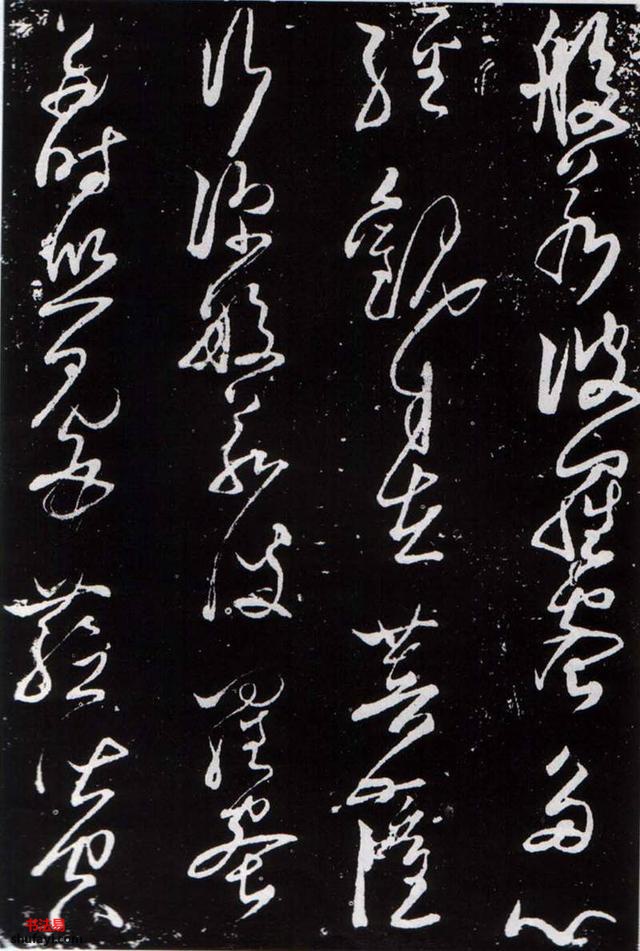 般若波羅蜜多心
經觀自在菩薩
行深般若波羅蜜
多時照見五蘊皆空
书法易
shufayi.com